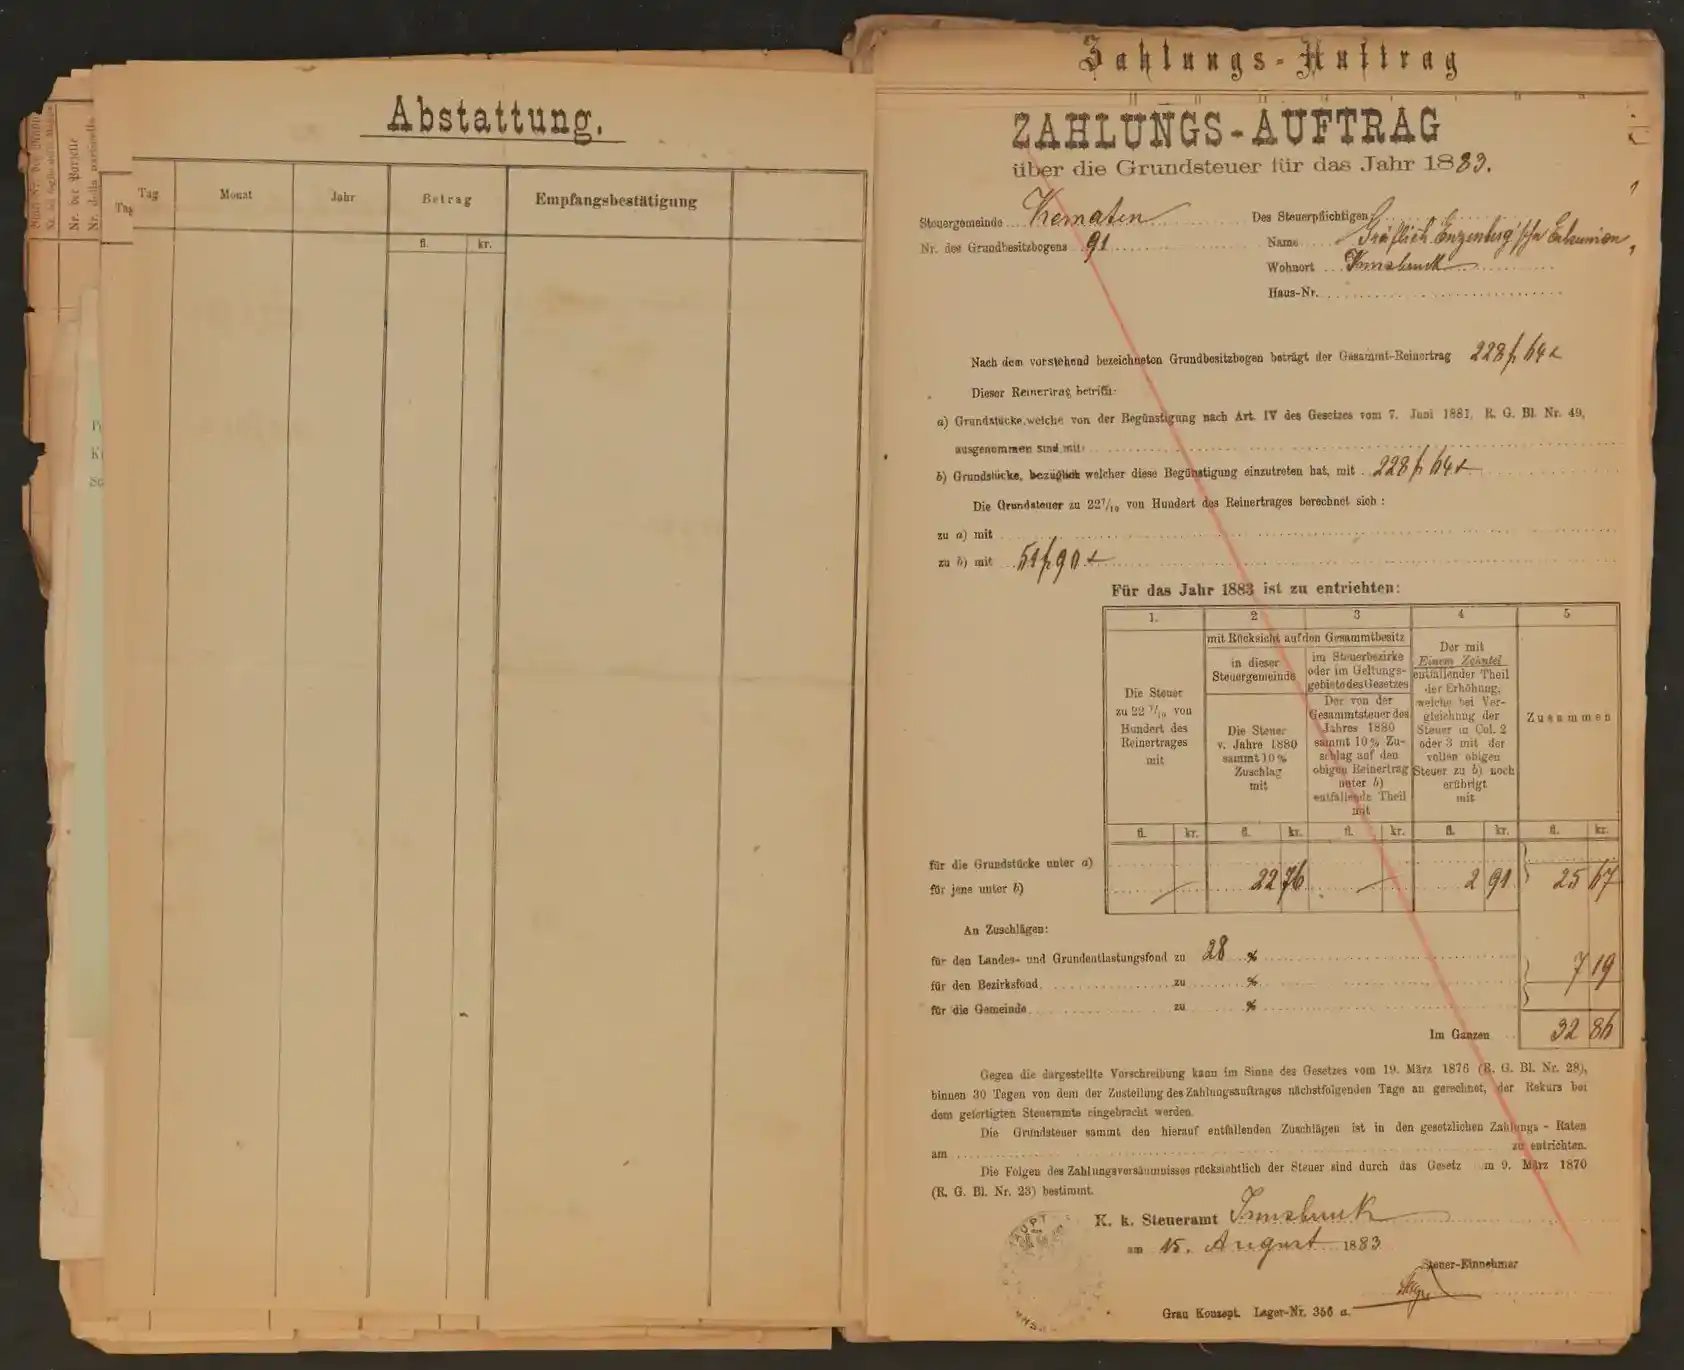 Nr. der Parzelle
Nr. della particella
Tag
Abstattung.
Tag Monat Jahr Betrag Empfangsbestätigung
fl. kr.
Zahlungs-Auftrag
ZAHLUNGS-AUFTRAG
über die Grundsteuer für das Jahr 1883.
Steuergemeinde Kematen
Nr. des Grundbesitzbogens 91
Des Steuerpflichtigen
Name Gräflich Enzenberg'sche
Wohnort Innsbruck
Haus-Nr.
Nach dem vorstehend bezeichneten Grundbesitzbogen beträgt der Gesammt-Reinertrag 228 f 64 x
Dieser Reinertrag betrifft:
a) Grundstücke, welche von der Begünstigung nach Art. IV des Gesetzes vom 7. Juni 1881, R. G. Bl. Nr. 49,
ausgenommen sind mit
b) Grundstücke, bezüglich welcher diese Begünstigung einzutreten hat, mit 228 f 64 x
Die Grundsteuer zu 22 7/10 von Hundert des Reinertrages berechnet sich :
zu a) mit
zu b) mit 51 f 90 x
Für das Jahr 1883 ist zu entrichten:
1. 2 3 4 5
mit Rücksicht auf den Gesammtbesitz
in dieser
Steuergemeinde
im Steuerbezirke
oder im Geltungs-
gebiete des Gesetzes
Die Steuer
zu 22 7/10 von
Hundert des
Reinertrages
mit
Die Steuer
v. Jahre 1880
sammt 10 %
Zuschlag
mit
Der von der
Gesammtsteuer des
Jahres 1880
sammt 10 % Zu-
schlag auf den
obigen Reinertrag
unter b)
entfallende Theil
mit
Der mit
Einem Zehntel
entfallender Theil
der Erhöhung,
welche bei Ver-
gleichung der
Steuer in Col. 2
oder 3 mit der
vollen obigen
Steuer zu b) noch
erübrigt
mit
Zusammen
fl. kr. fl. kr. fl. kr. fl. kr. fl. kr.
für die Grundstücke unter a)
für jene unter b) 22 76 2 91 25 67
An Zuschlägen:
für den Landes- und Grundentlastungsfond zu 28 % 7 19
für den Bezirksfond zu %
für die Gemeinde zu %
Im Ganzen 32 86
Gegen die dargestellte Vorschreibung kann im Sinne des Gesetzes vom 19. März 1876 (R. G. Bl. Nr. 28),
binnen 30 Tagen von dem der Zustellung des Zahlungsauftrages nächstfolgenden Tage an gerechnet, der Rekurs bei
dem gefertigten Steueramte eingebracht werden.
Die Grundsteuer sammt den hierauf entfallenden Zuschlägen ist in den gesetzlichen Zahlungs-Raten
am zu entrichten.
Die Folgen des Zahlungsversäumnisses rücksichtlich der Steuer sind durch das Gesetz m 9. März 1870
(R. G. Bl. Nr. 23) bestimmt.
K. k. Steueramt Innsbruck
am 15. August 1883
Steuer-Einnehmer
Grau Konzept. Lager-Nr. 356 a.